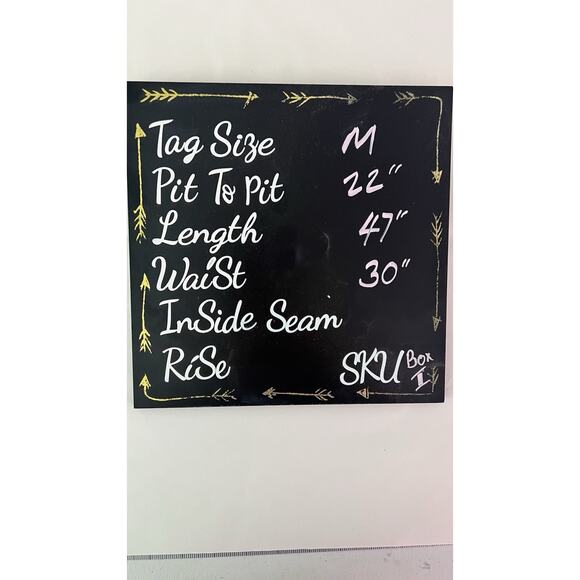 Tag Size M
Pit To Pit 22"
Length 47"
WaiSt 30"
InSide Seam
RiSe SKU Box II